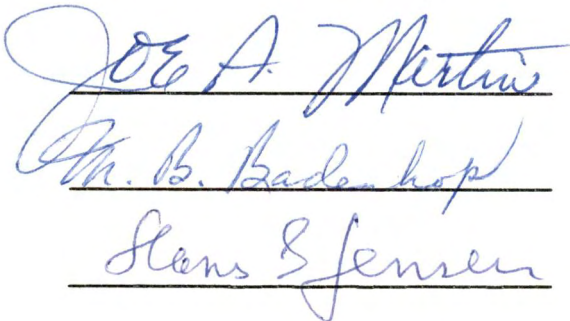 Joe A. Martin
M. B. Badenhop
Hans E Jensen